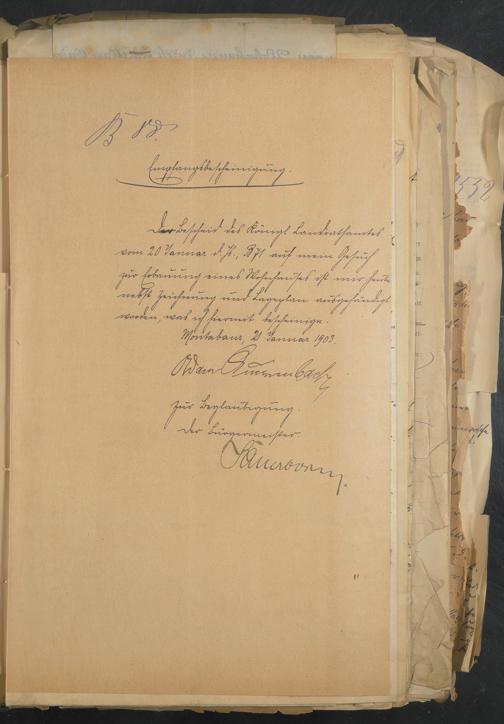 B
Empfangsbescheinigung.
Der Bescheid des Königl Landrathsamtes
vom 20 Januar d. Js., B 71 auf mein Gesuch
zur Erbauung eines Wohnhauses ist mir heute
nebst Zeichnung und Lageplan ausgehändigt
worden, was ich hiermit bescheinige.
Montabaur, 2 Januar 1903.
Adam
Zur Beglaubigung.
Der Bürgermeister.
Sauerborn.